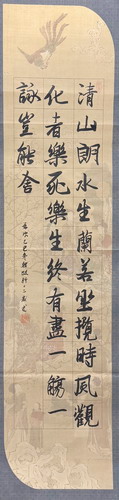 清山朗水生蘭若坐攬時風觀
化者樂死樂生終有盡一觴一
詠豈能舍